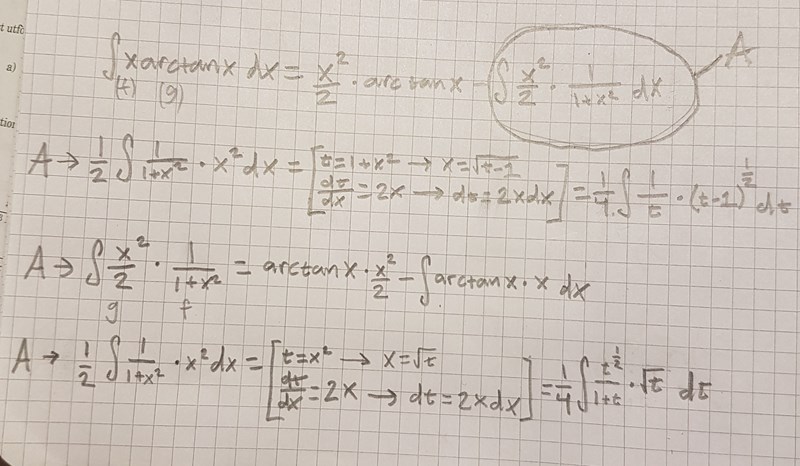 t utfö
∫x arctan x dx = x²/2 · arctan x - ∫ x²/2 · 1/(1+x²) dx A
a)
(f) (g)
tion
A → 1/2 ∫ 1/(1+x²) · x² dx = [t=1+x² → x=√(t-1)
dt/dx = 2x → dt=2xdx] = 1/4 ∫ 1/t · (t-1)^(1/2) dt
A → ∫ x²/2 · 1/(1+x²) = arctan x · x²/2 - ∫ arctan x · x dx
g f
A → 1/2 ∫ 1/(1+x²) · x² dx = [t=x² → x=√t
dt/dx = 2x → dt=2xdx] = 1/4 ∫ t^(1/2)/(1+t) · √t dt